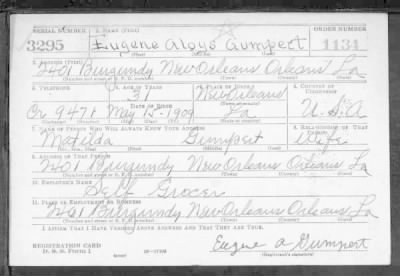 SERIAL NUMBER 1. NAME (Print) ORDER NUMBER
3295 Eugene Aloys Gumpert 1134
2. ADDRESS (Print)
2401 Burgundy New Orleans Orleans La
3. TELEPHONE 4. AGE IN YEARS 5. PLACE OF BIRTH 6. COUNTRY OF CITIZENSHIP
31 New Orleans
DATE OF BIRTH
Cr 9471 May 15-1909 La U.S.A
7. NAME OF PERSON WHO WILL ALWAYS KNOW YOUR ADDRESS 8. RELATIONSHIP OF THAT PERSON
Matilda Gumpert Wife
9. ADDRESS OF THAT PERSON
2401 Burgundy New Orleans Orleans La
10. EMPLOYER'S NAME
Self Grocer
11. PLACE OF EMPLOYMENT OR BUSINESS
2401 Burgunndy New Orleans Orleans La
I AFFIRM THAT I HAVE VERIFIED ABOVE ANSWERS AND THAT THEY ARE TRUE.
REGISTRATION CARD
D. S. S. Form 1
Eugene A Gumpert
(Registrant's signature)